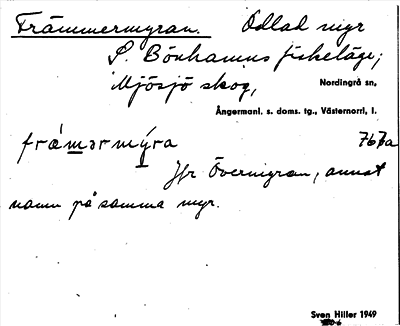 Främmermyran. Odlad myr
S. Bönhamns fiskeläge;
Mjösjö skog, Nordingrå sn,
Ångermanl. s. doms. tg., Västernorrl. l.
frá̀mərmýra 767a
Jfr Övermyran, annat
namn på samma myr.
Sven Hiller 1949